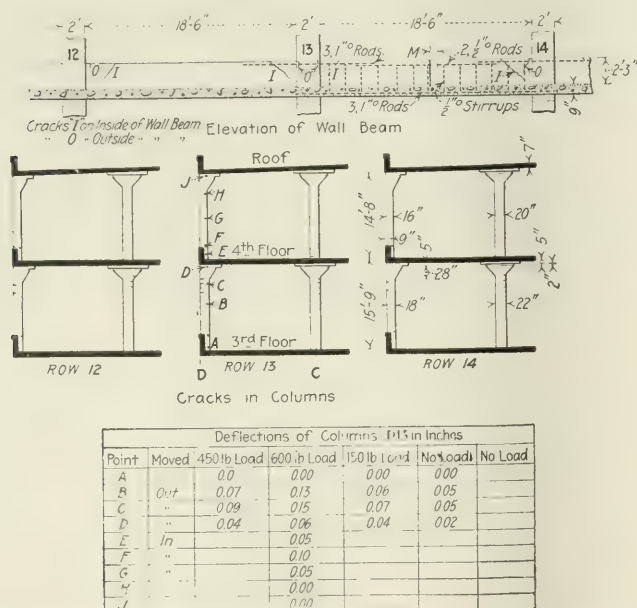 2' 18'-6" 2' 18'-6" 2'
12 13 3,1"° Rods M 2,½"° Rods 14
O I I O I I O 2'-3"
3,1"° Rods ½"° Stirrups 9"
Cracks I on Inside of Wall Beam
" O " Outside " " "
Elevation of Wall Beam
Roof 7"
J
H
G
F
E 4th Floor
D
C
B
A 3rd Floor
14'-8" 16" 20"
9" 5" 5"
28" 2"
15'-9" 18" 22"
ROW 12 D ROW 13 C ROW 14
Cracks in Columns
Deflections of Columns in Inches
Point Moved 450 lb Load 600 lb Load 150 lb Load No Load No Load
A 0.0 0.00 0.00 0.00
B Out 0.07 0.13 0.06 0.05
C " 0.09 0.15 0.07 0.05
D " 0.04 0.06 0.04 0.02
E In 0.05
F " 0.10
G " 0.05
H 0.00
J 0.00